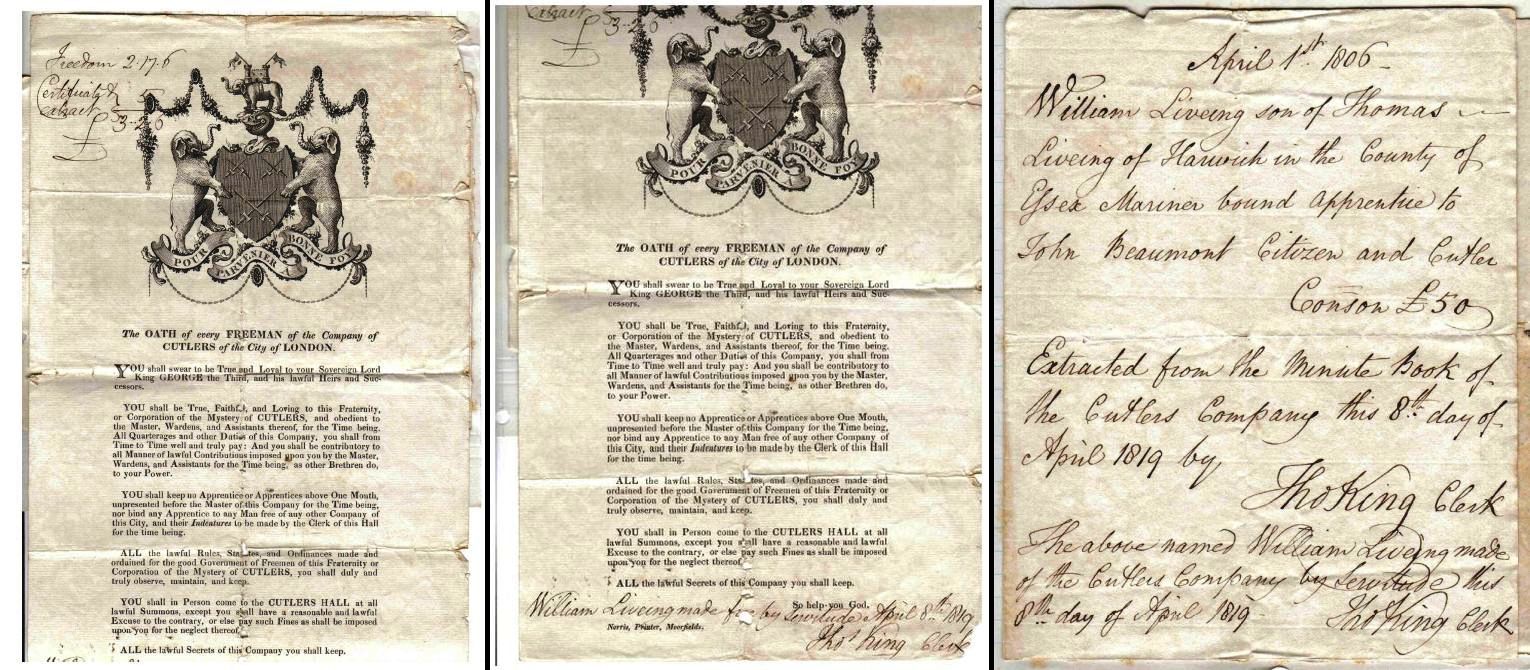 Freedom 2·17·6
Certificate &
Extract 5
£ 3-2-6
POUR PARVENIER A BONNE FOY
The OATH of every FREEMAN of the Company of
CUTLERS of the City of LONDON.
YOU shall swear to be True and Loyal to your Sovereign Lord
King GEORGE the Third, and his lawful Heirs and Suc-
cessors.
YOU shall be True, Faithful, and Loving to this Fraternity,
or Corporation of the Mystery of CUTLERS, and obedient to
the Master, Wardens, and Assistants thereof, for the Time being.
All Quarterages and other Duties of this Company, you shall from
Time to Time well and truly pay: And you shall be contributory to
all Manner of lawful Contributions imposed upon you by the Master,
Wardens, and Assistants for the Time being, as other Brethren do,
to your Power.
YOU shall keep no Apprentice or Apprentices above One Month,
unpresented before the Master of this Company for the Time being,
nor bind any Apprentice to any Man free of any other Company of
this City, and their Indentures to be made by the Clerk of this Hall
for the time being.
ALL the lawful Rules, Statutes, and Ordinances made and
ordained for the good Government of Freemen of this Fraternity or
Corporation of the Mystery of CUTLERS, you shall duly and
truly observe, maintain, and keep.
YOU shall in Person come to the CUTLERS HALL at all
lawful Summons, except you shall have a reasonable and lawful
Excuse to the contrary, or else pay such Fines as shall be imposed
upon you for the neglect thereof.
ALL the lawful Secrets of this Company you shall keep.
Extract 5
£ 3-2-6
POUR PARVENIER A BONNE FOY
The OATH of every FREEMAN of the Company of
CUTLERS of the City of LONDON.
YOU shall swear to be True and Loyal to your Sovereign Lord
King GEORGE the Third, and his lawful Heirs and Suc-
cessors.
YOU shall be True, Faithful, and Loving to this Fraternity,
or Corporation of the Mystery of CUTLERS, and obedient to
the Master, Wardens, and Assistants thereof, for the Time being.
All Quarterages and other Duties of this Company, you shall from
Time to Time well and truly pay: And you shall be contributory to
all Manner of lawful Contributions imposed upon you by the Master,
Wardens, and Assistants for the Time being, as other Brethren do,
to your Power.
YOU shall keep no Apprentice or Apprentices above One Month,
unpresented before the Master of this Company for the Time being,
nor bind any Apprentice to any Man free of any other Company of
this City, and their Indentures to be made by the Clerk of this Hall
for the time being.
ALL the lawful Rules, Statutes, and Ordinances made and
ordained for the good Government of Freemen of this Fraternity or
Corporation of the Mystery of CUTLERS, you shall duly and
truly observe, maintain, and keep.
YOU shall in Person come to the CUTLERS HALL at all
lawful Summons, except you shall have a reasonable and lawful
Excuse to the contrary, or else pay such Fines as shall be imposed
upon you for the neglect thereof.
ALL the lawful Secrets of this Company you shall keep.
So help you God.
William Liveing made free by Servitude April 8th 1819
Norris, Printer, Moorfields.
Thos King Clerk
April 1st 1806
William Liveing son of Thomas
Liveing of Harwich in the County of
Essex Mariner bound Apprentice to
John Beaumont Citizen and Cutler
Conson £50
Extracted from the Minute Book of
the Cutlers Company this 8th day of
April 1819 by,
Tho King Clerk
The above named William Liveing made
of the Cutlers Company by Servitude this
8th day of April 1819
Tho King Clerk